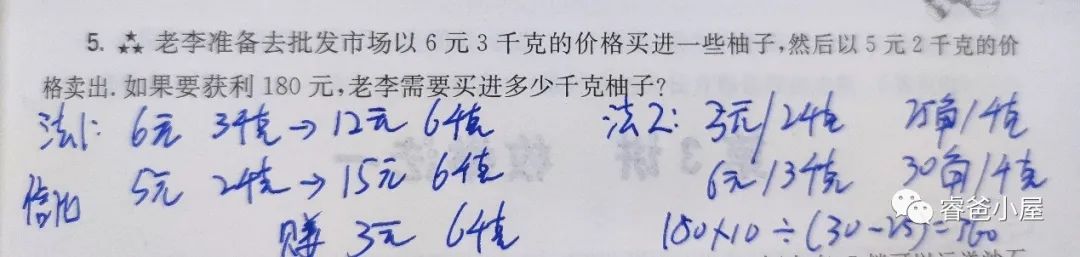 5. ☆☆☆ 老李准备去批发市场以 6 元 3 千克的价格买进一些柚子,然后以 5 元 2 千克的价
格卖出. 如果要获利 180 元,老李需要买进多少千克柚子?
法1: 6元 3千克 → 12元 6千克
倍比 5元 2千克 → 15元 6千克
赚 3元 6千克
法2: 5元/2千克 25角/千克
6元/3千克 30角/千克
180×10÷(30-25)=360
睿爸小屋